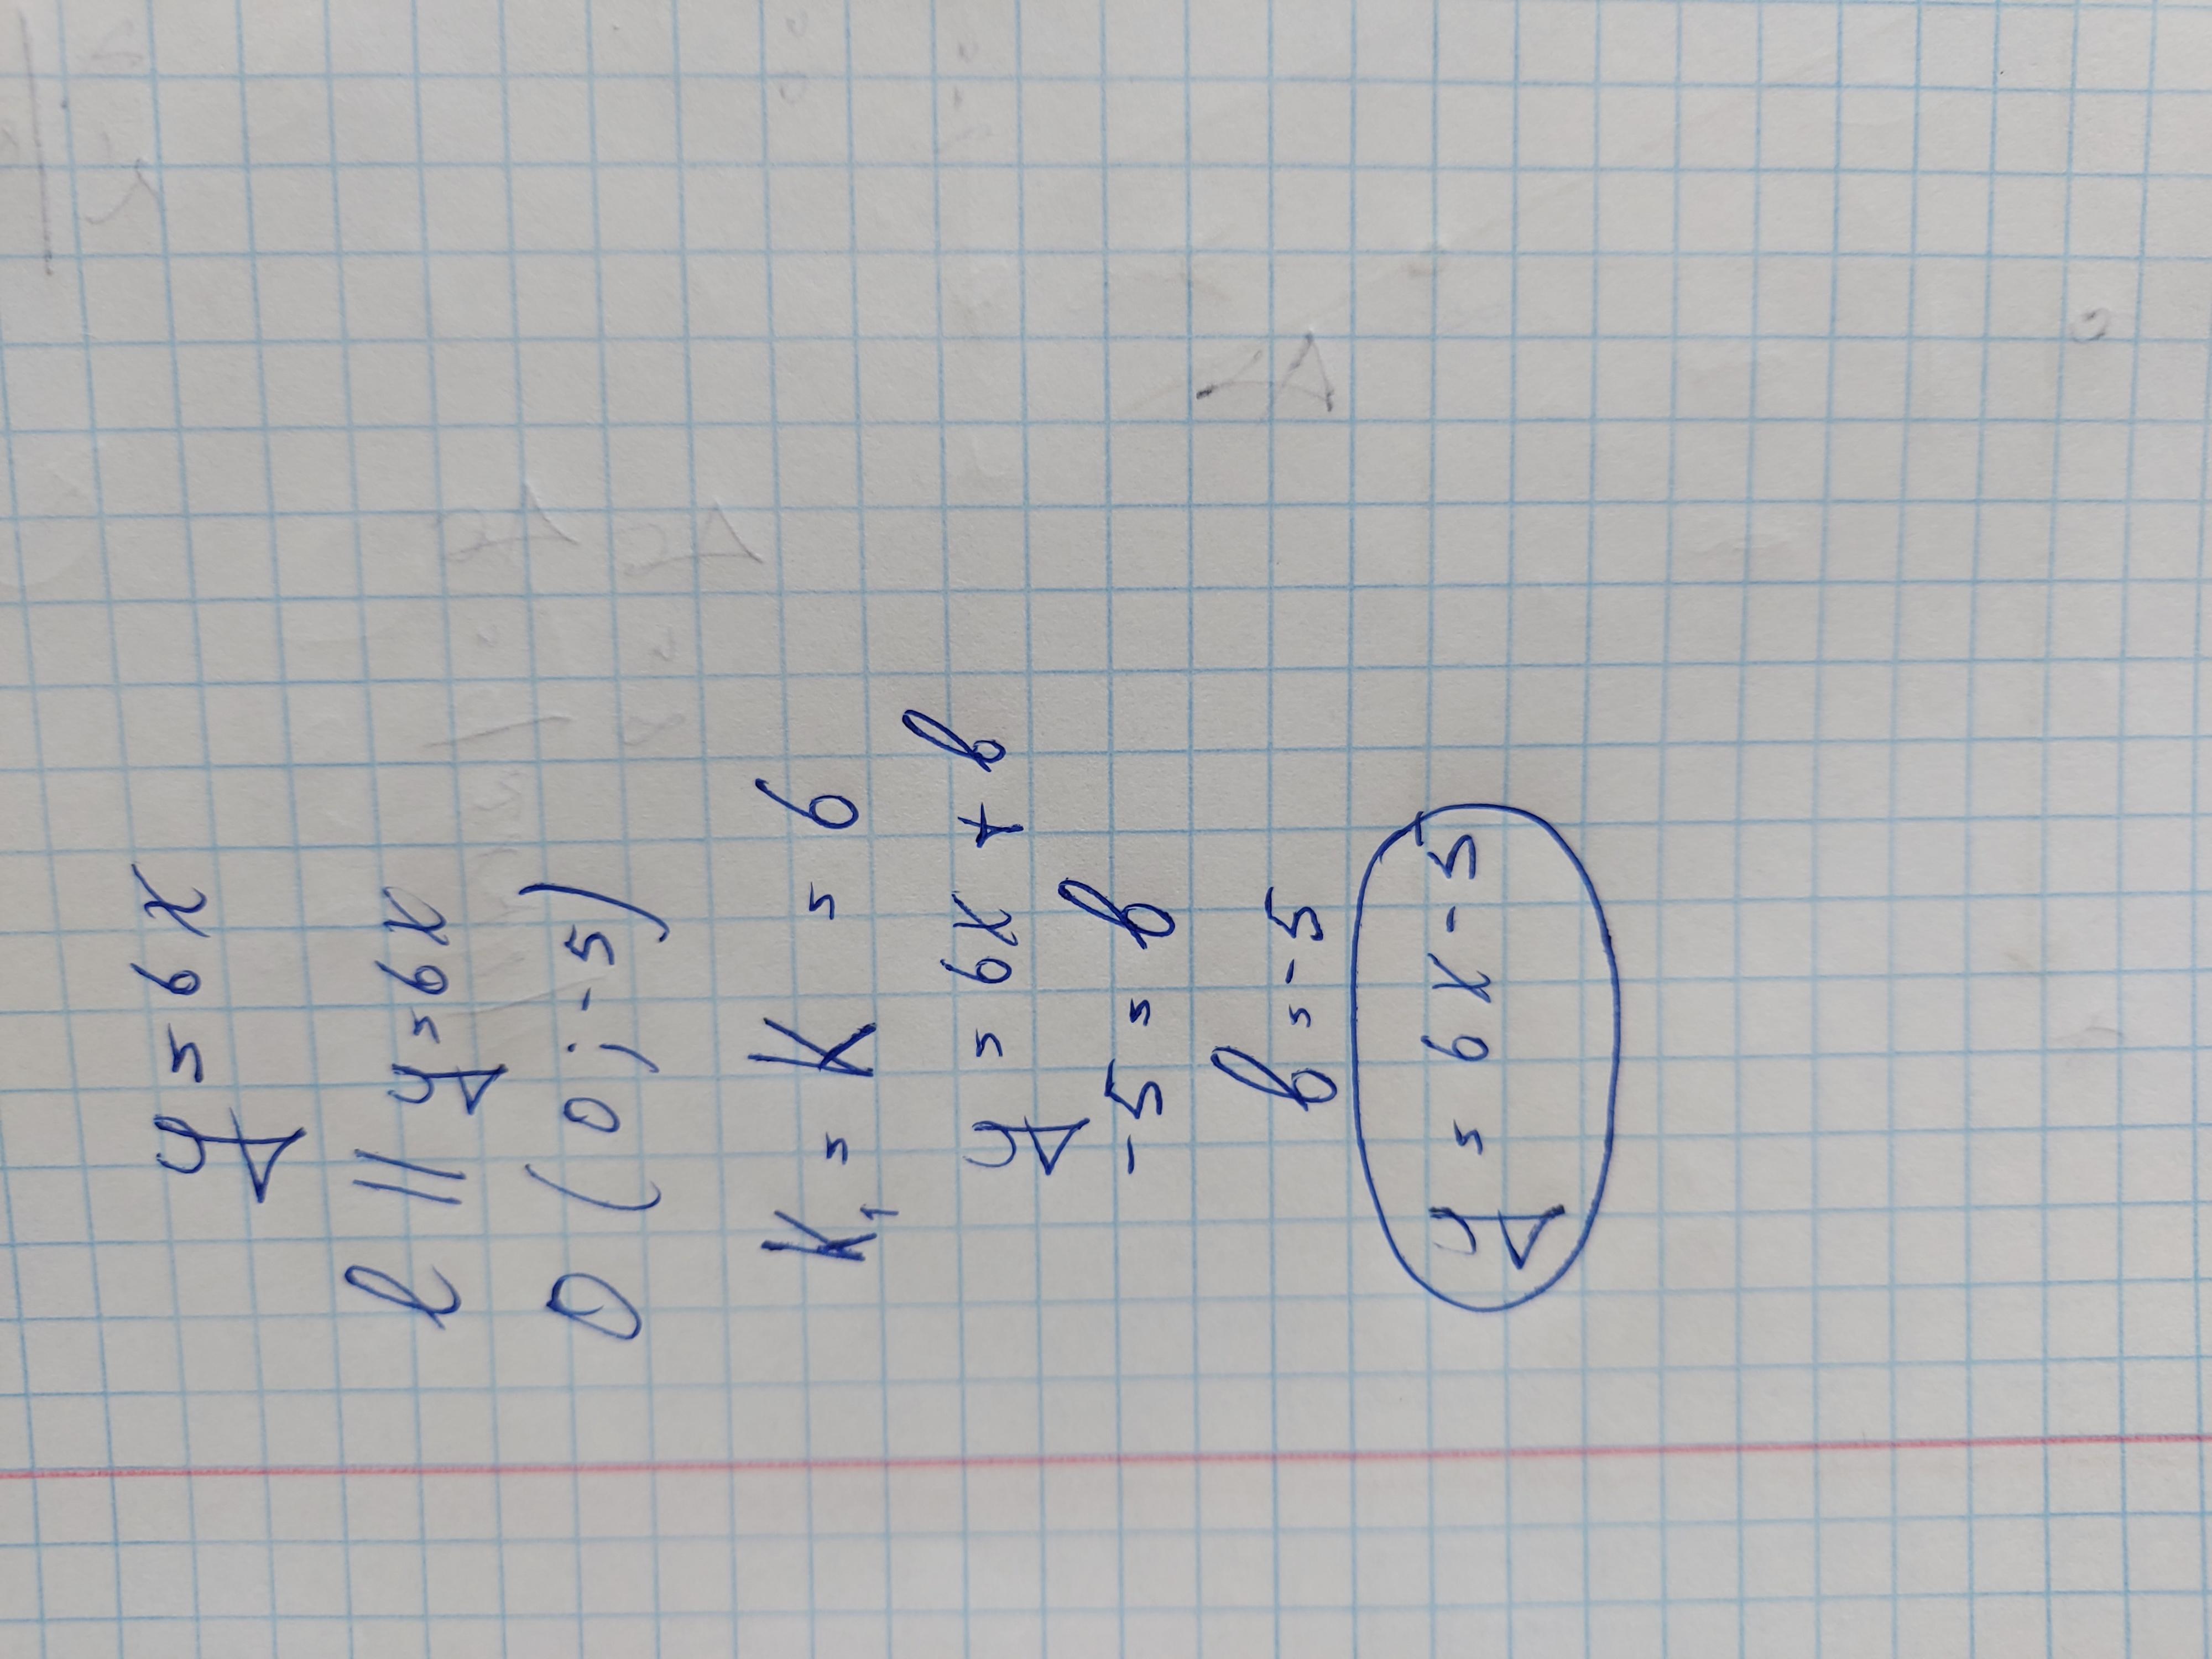 y = 6x
l || y = 6x
D (0; -5)
K₁ = K = 6
y = 6x + b
-5 = b
b = -5
y = 6x - 5